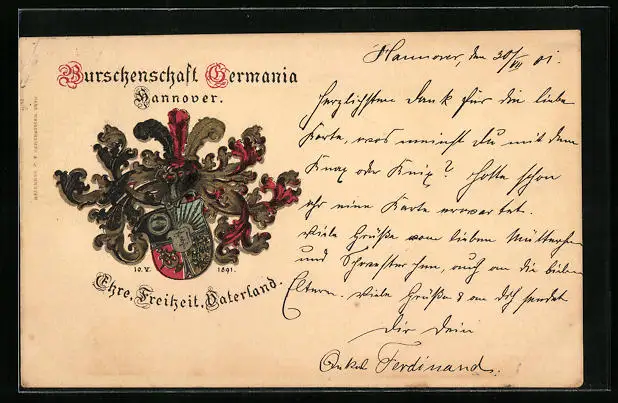 Burschenschaft Germania
Hannover.
10. V. 1891.
Ehre, Freiheit, Vaterland.
Hannover, den 30/VII 01.
Herzlichsten Dank für die liebe
Karte, was meinst du mit dem
Knax oder Knix? Hatte schon
ehr eine Karte erwartet.
Viele Grüße vom lieben Mütterchen
und Schwesterchen, auch an die lieben
Eltern. Viele Grüße an dich sendet
Dir Dein
Onkel Ferdinand.